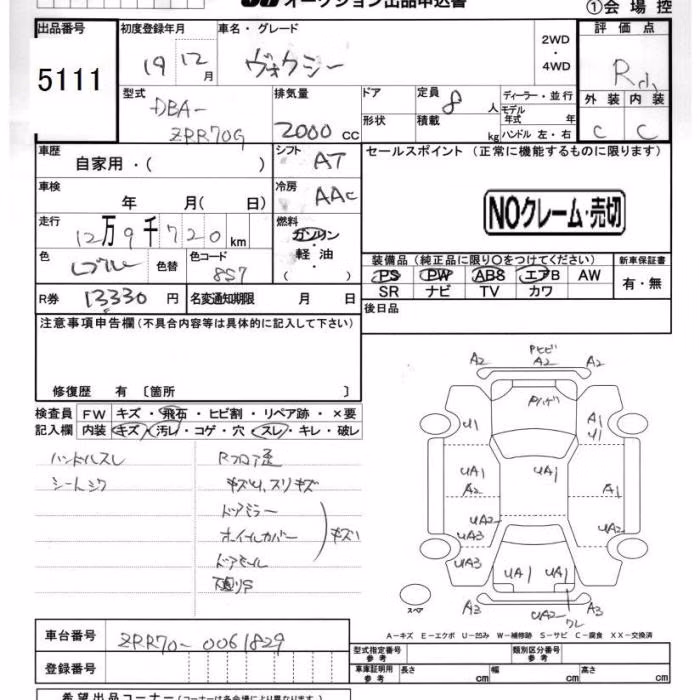 オークション出品申込書
①会場控
出品番号
5111
初度登録年月
19 12 月
車名・グレード
ヴォクシー
2WD
・
4WD
評価点
外装 内装
C C
型式
DBA-
ZRR70G
排気量
2000 cc
ドア
形状
定員 8 人
積載 kg
ディーラー・並行
モデル年式 年
ハンドル 左・右
車歴
自家用・( )
シフト
AT
セールスポイント (正常に機能するものに限ります)
車検
年 月( 日)
冷房
AAC
NOクレーム・売切
走行
12万9千720 km
燃料
ガソリン
・
軽油
・
( )
色
色替
色コード
8S7
装備品(純正品に限り○をつけてください)
PS PW ABS エアB AW
SR ナビ TV カワ
新車保証書
有・無
R券 13330 円
名変通知期限 月 日
後日品
注意事項申告欄(不具合内容等は具体的に記入して下さい)
修復歴 有 〔箇所 〕
検査員
記入欄
FW キズ・飛石・ヒビ割・リペア跡・×要
内装 キズ・汚レ・コゲ・穴・スレ・キレ・破レ
ハンドルスレ
シートシワ
キズU、スリキズ
ドアミラー
ホイールカバー
キズ
ドアモール
A2 A2
Pハゲ
U1
A1
U1
UA1
A2
UA1
A1
UA2
UA3
UA3
UA3
UA1 UA1
A3
UA2
A3
ワレ
スペア
A-キズ E-エクボ U-凹み W-補修跡 S-サビ C-腐食 XX-交換済
車台番号
ZRR70-0061829
登録番号
型式指定番号
参考
類別区分番号
参考
車庫証明用
参考
長さ cm
幅 cm
高さ cm
希望出品コーナー